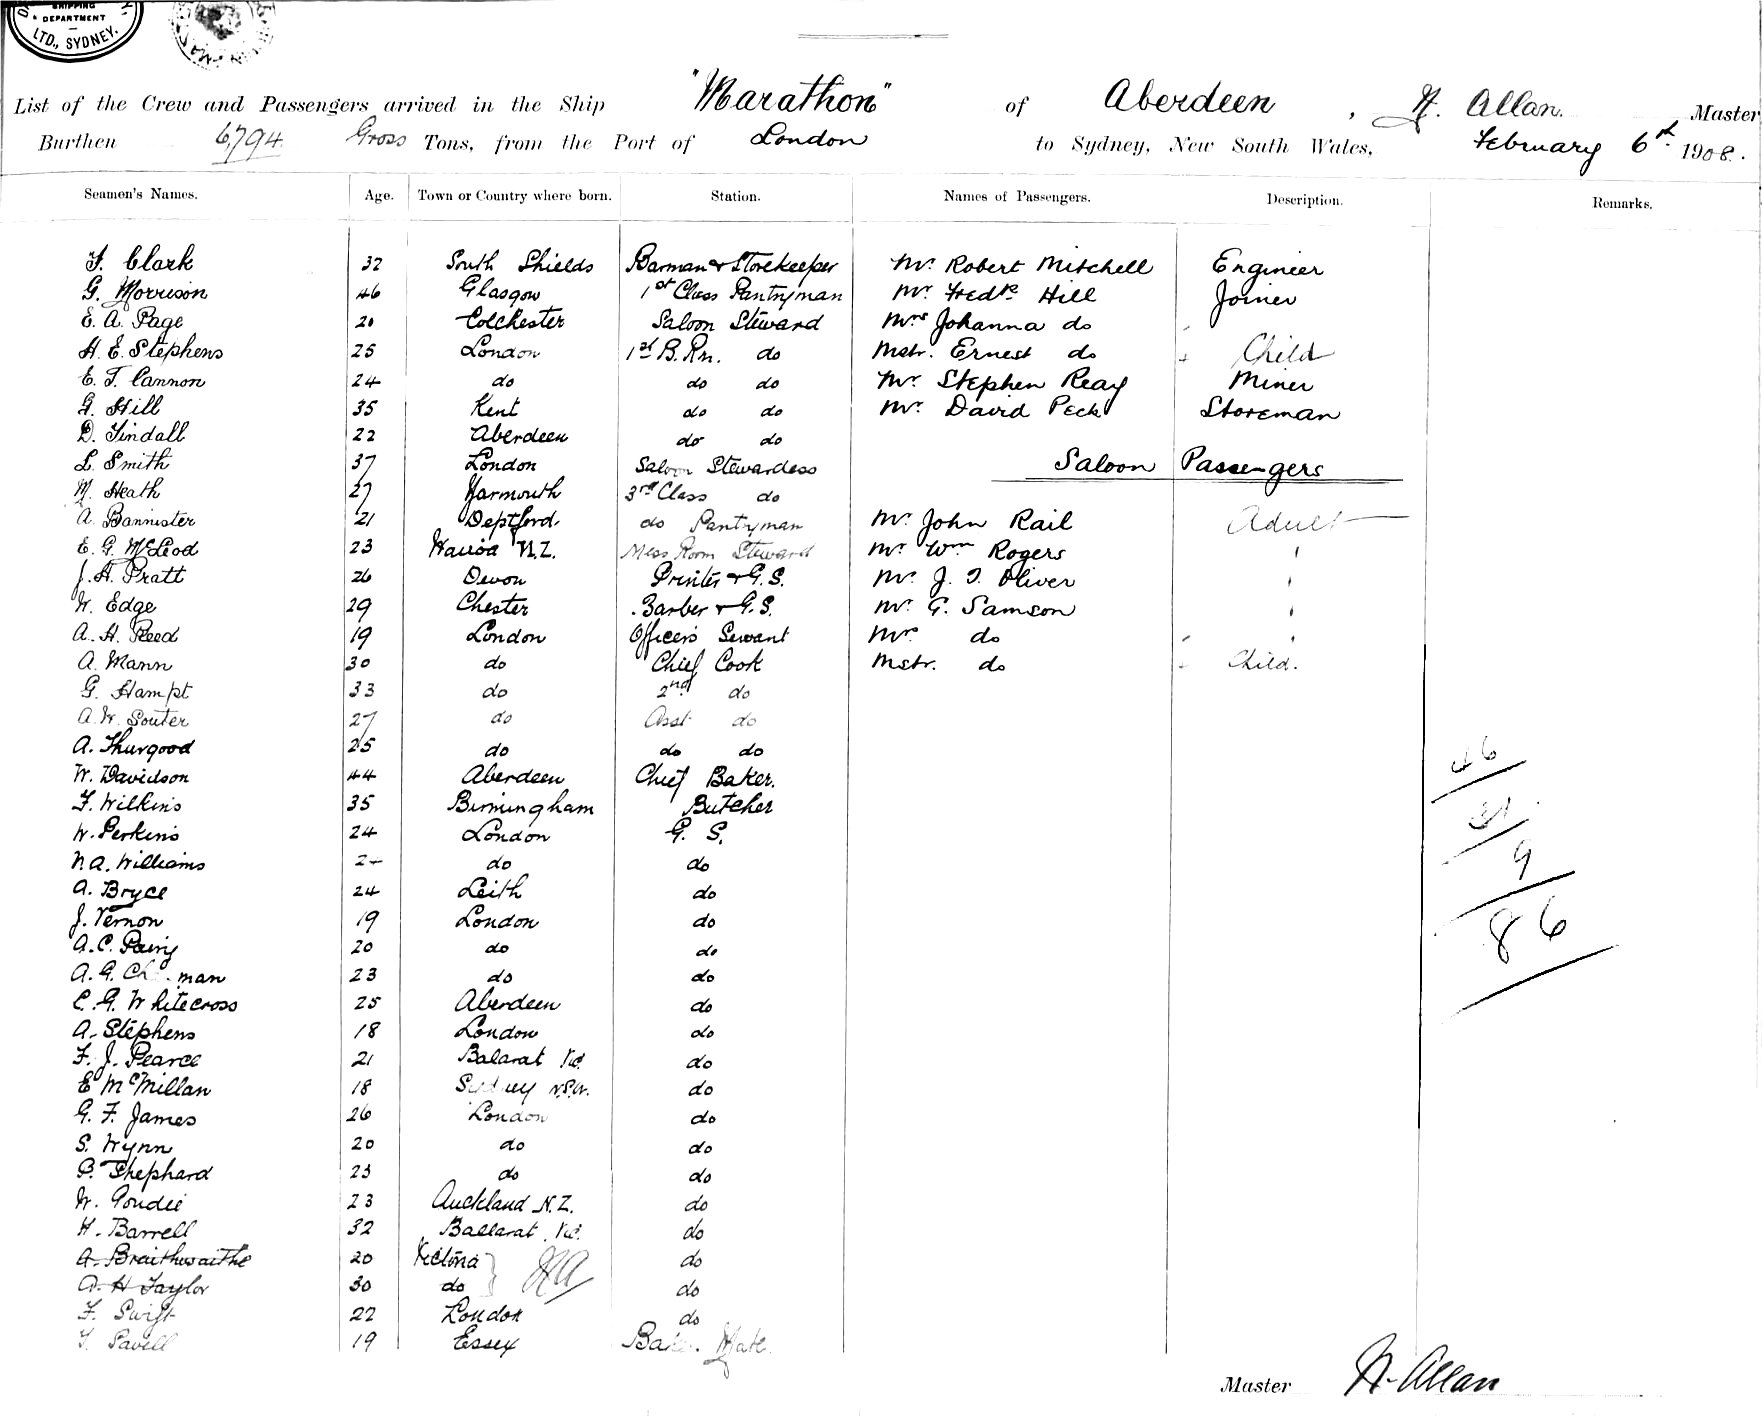 SHIPPING
DEPARTMENT
LTD., SYDNEY.
List of the Crew and Passengers arrived in the Ship "Marathon" of Aberdeen, Allan. Master
Burthen 6794 Gross Tons, from the Port of London to Sydney, New South Wales, February 6th 1908.
Seamen's Names. Age. Town or Country where born. Station. Names of Passengers. Description. Remarks.
F. Clark 32 South Shields Barman & Storekeeper Mr. Robert Mitchell Engineer
G. Morrison 46 Glasgow 1st Class Pantryman Mr. Fredk Hill Joiner
E. A. Page 20 Colchester Saloon Steward Mrs Johanna do
H. E. Stephens 25 London 1st B. Rm. do Mstr. Ernest do Child
E. T. Cannon 24 do do do Mr. Stephen Reay Miner
G. Hill 35 Kent do do Mr. David Peck Storeman
D. Tindall 22 Aberdeen do do
L. Smith 37 London Saloon Stewardess Saloon Passengers
M. Heath 27 Yarmouth 3rd Class do
A. Bannister 21 Deptford. do Pantryman Mr. John Rail Adult
E. G. McLeod 23 N.Z. Mess Room Steward Mr. Wm Rogers "
J. H. Pratt 26 Devon Printer & G.S. Mr. J. T. Oliver "
W. Edge 29 Chester Barber & G.S. Mr. G. Samson "
A. H. Reed 19 London Officers Servant Mrs do "
A. Mann 30 do Chief Cook Mstr. do Child.
G. Hampt 33 do 2nd do
A. W. Souter 27 do Asst do
A. Thurgood 25 do do do
W. Davidson 44 Aberdeen Chief Baker. 46
F. Wilkins 35 Birmingham Butcher 31
W. Perkins 24 London G. S.
Williams do do 9
A. Bryce 24 Leith do
J. Vernon 19 London do 86
A. C. 20 do do
A. G. 23 do do
C. G. Whitecross 25 Aberdeen do
A. Stephens 18 London do
F. J. Pearce 21 Balarat Vic. do
E McMillan 18 Sydney N.S.W. do
G. F. James 26 London do
S. Wynn 20 do do
Shephard 23 do do
W. Goudie 23 Auckland N.Z. do
H. Barrell 32 Ballarat Vic. do
A. Braithwaithe 20 Victoria do
A. H Taylor 30 do do
F. Swift 22 London do
Savell 19 Essex Mate
Master Allan